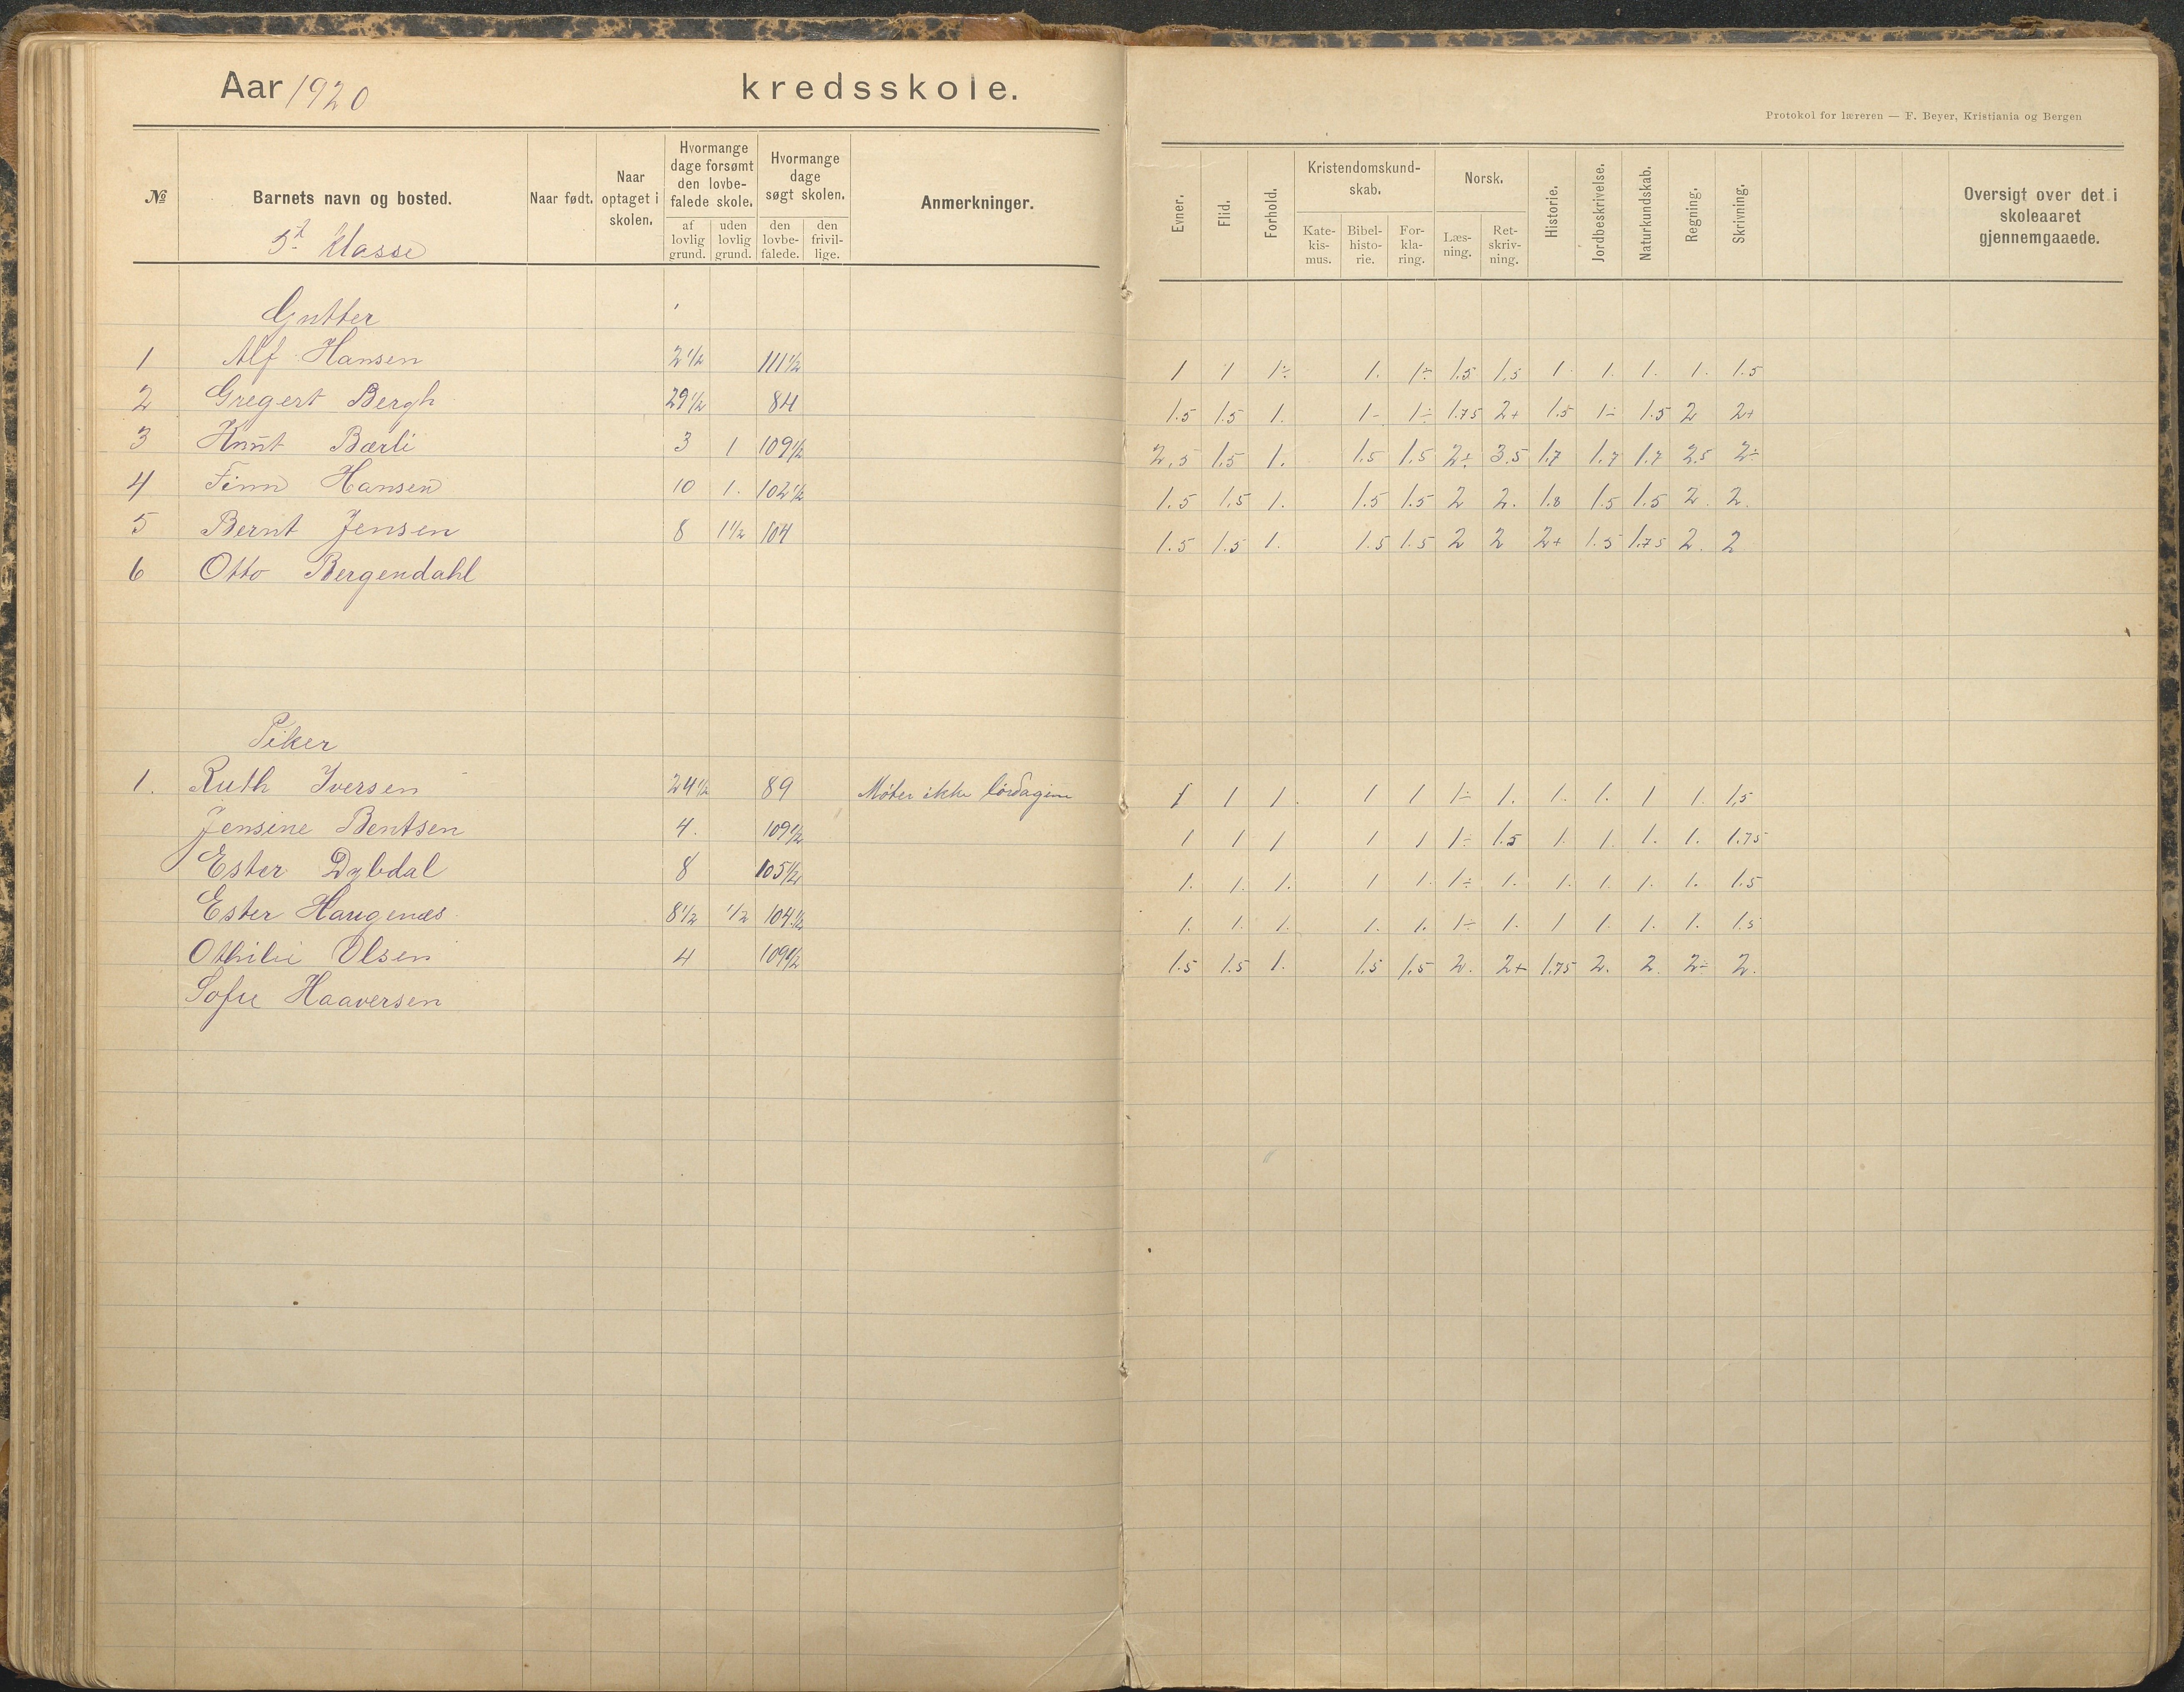 Aar 1920 kredsskole.
Protokol for læreren — F. Beyer, Kristiania og Bergen
№ Barnets navn og bosted. Naar født. Naar optaget i skolen. Hvormange dage forsømt den lovbefalede skole. af lovlig grund. uden lovlig grund. Hvormange dage søgt skolen. den lovbefalede. den frivillige. Anmerkninger. Evner. Flid. Forhold. Kristendomskundskab. Katekismus. Bibelhistorie. Forklaring. Norsk. Læsning. Retskrivning. Historie. Jordbeskrivelse. Naturkundskab. Regning. Skrivning. Oversigt over det i skoleaaret gjennemgaaede.
5te klasse
Gutter
1 Alf Hansen 2 1/2 111 1/2 1 1 1÷ 1. 1÷ 1.5 1.5 1 1. 1. 1. 1.5
2 Gregert Bergh 29 1/2 84 1.5 1.5 1. 1- 1÷ 1.75 2+ 1.5 1÷ 1.5 2 2+
3 Knut Bærli 3 1 109 1/2 2,5 1.5 1. 1.5 1.5 2÷ 3.5 1.7 1.7 1.7 2.5 2÷
4 Finn Hansen 10 1. 102 1/2 1.5 1.5 1. 1.5 1.5 2 2. 1.8 1.5 1.5 2. 2.
5 Bernt Jensen 8 1 1/2 104 1.5 1.5 1. 1.5 1.5 2 2 2+ 1.5 1.75 2. 2
6 Otto Bergendahl
Piker
1. Ruth Iversen 24 1/2 89 Møter ikke lørdagene 1 1 1. 1 1 1÷ 1. 1. 1. 1 1. 1,5
Jensine Bentsen 4. 109 1/2 1 1 1 1 1 1÷ 1.5 1. 1. 1. 1. 1.75
Ester Dybdal 8 105 1/2 1. 1. 1. 1 1. 1÷ 1. 1. 1. 1. 1. 1.5
Ester Haugenæs 8 1/2 1/2 104 1/2 1. 1. 1. 1. 1. 1÷ 1. 1 1. 1. 1. 1.5
Othilie Olsen 4 109 1/2 1.5 1.5 1. 1.5 1.5 2. 2+ 1.75 2. 2. 2÷ 2.
Sofie Haaversen